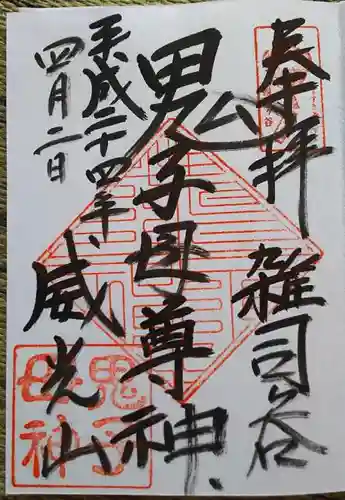 奉拝
雑司ヶ谷
鬼子母尊神
威光山
平成二十四年
四月二日
鬼子
母神